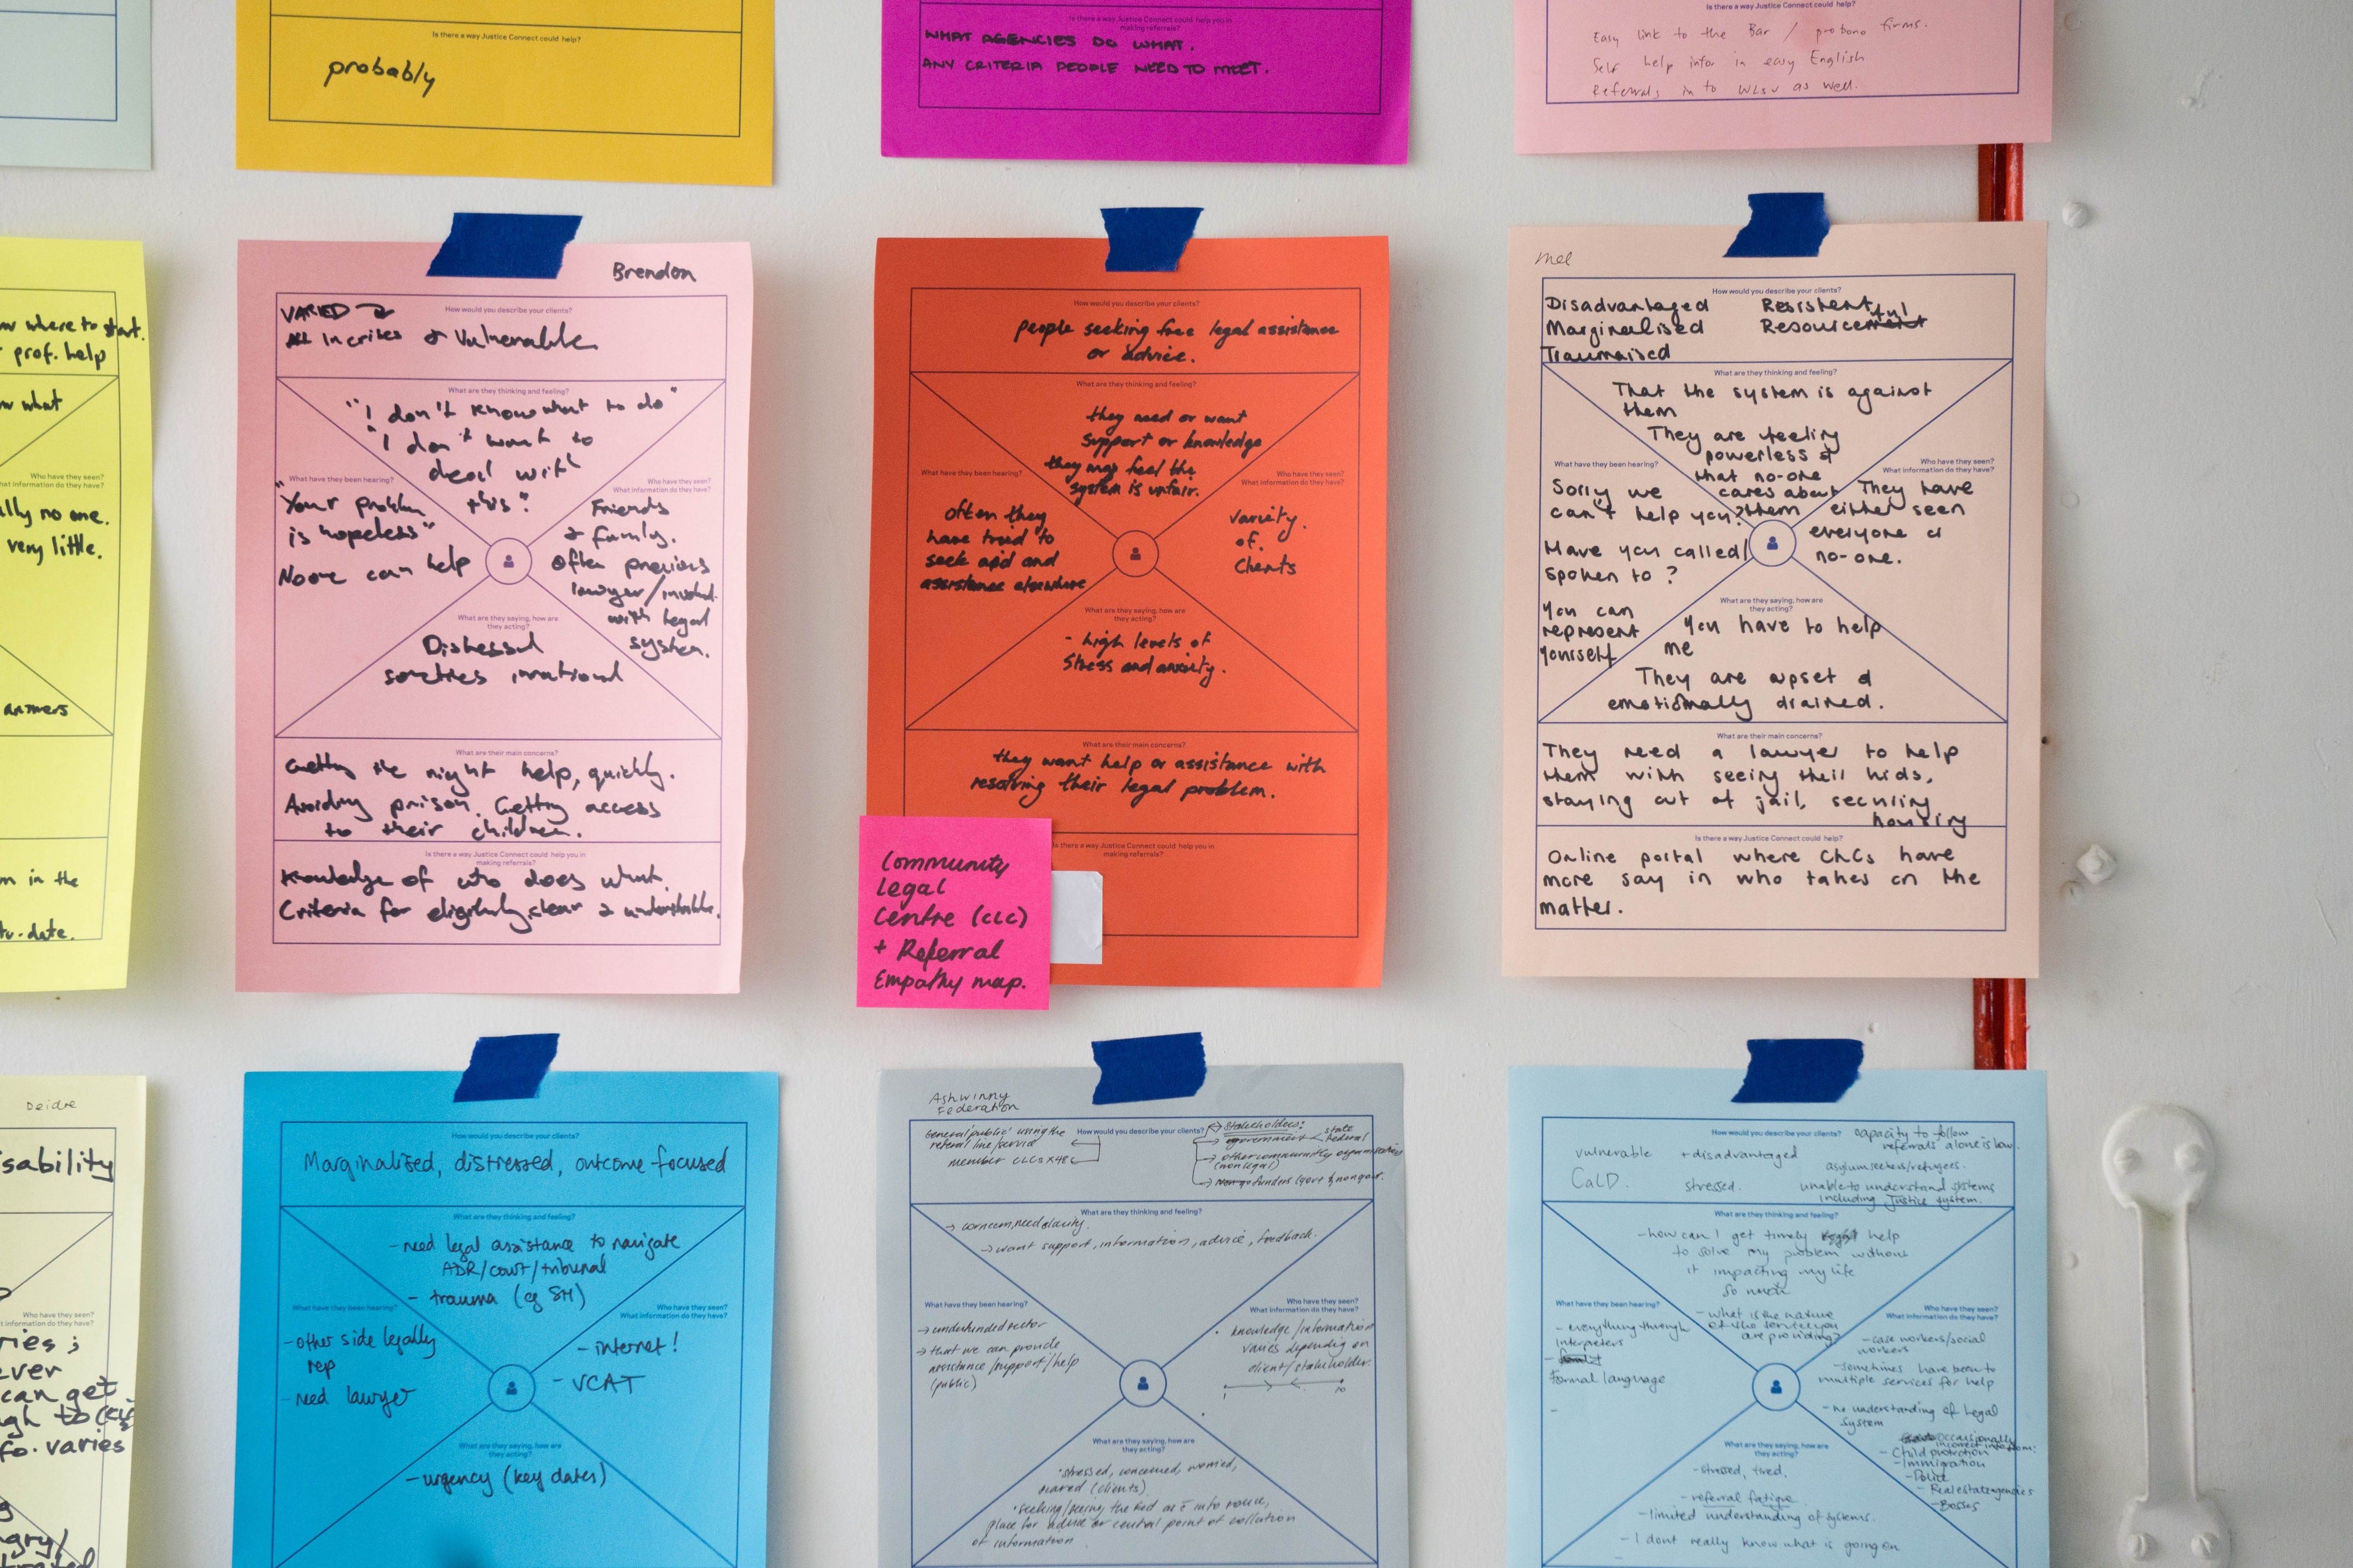 Is there a way Justice Connect could help?
probably
Is there a way Justice Connect could help you in
making referrals?
WHAT AGENCIES DO WHAT.
ANY CRITERIA PEOPLE NEED TO MEET.
Is there a way Justice Connect could help?
Easy link to the Bar / probono firms.
Self help infor in easy English
Referrals in to WLSV as well.
where to start.
prof. help
what
Who have they seen?
What information do they have?
no one.
very little.
answers
in the
date.
Brendon
How would you describe your clients?
VARIED
In crises & Vulnerable
What are they thinking and feeling?
"I don't know what to do"
"I don't want to
deal with
this."
What have they been hearing?
"Your problem
is hopeless"
Noone can help
Who have they seen?
What information do they have?
Friends
& family.
Often previous
lawyer/involved
with legal
system.
What are they saying, how are
they acting?
Distressed
sometimes irrational
What are their main concerns?
Getting the right help, quickly.
Avoiding prison. Getting access
to their children.
Is there a way Justice Connect could help you in
making referrals?
Knowledge of who does what.
Criteria for eligibility, clear & understandable.
How would you describe your clients?
people seeking free legal assistance
or advice.
What are they thinking and feeling?
they need or want
support or knowledge
they may feel the
system is unfair.
What have they been hearing?
often they
have tried to
seek aid and
assistance elsewhere
Who have they seen?
What information do they have?
variety
of
clients
What are they saying, how are
they acting?
- high levels of
stress and anxiety.
What are their main concerns?
they want help or assistance with
resolving their legal problem.
Is there a way Justice Connect could help you in
making referrals?
Community
Legal
Centre (CLC)
+ Referral
Empathy map.
Mel
How would you describe your clients?
Disadvantaged Resistent
Marginalised Resourceful
Traumaised
What are they thinking and feeling?
That the system is against
them
They are feeling
powerless &
that no-one
cares about
them
What have they been hearing?
Sorry we
can't help you?
Have you called/
spoken to?
You can
represent
yourself
Who have they seen?
What information do they have?
They have
either seen
everyone or
no-one.
What are they saying, how are
they acting?
You have to help
me
They are upset &
emotionally drained.
What are their main concerns?
They need a lawyer to help
them with seeing their kids,
staying out of jail, securing
housing
Is there a way Justice Connect could help?
Online portal where CLCs have
more say in who takes on the
matter.
Deidre
Who have they seen?
What information do they have?
can get
varies
How would you describe your clients?
Marginalised, distressed, outcome focused
What are they thinking and feeling?
- need legal assistance to navigate
ADR/court/tribunal
- trauma (eg SH)
What have they been hearing?
- other side legally
rep
- need lawyer
Who have they seen?
What information do they have?
- internet!
- VCAT
What are they saying, how are
they acting?
- urgency (key dates)
Ashwinny
Federation
How would you describe your clients?
General 'public' using the
referral line/service
member CLCs x48
Stakeholders:
government state
federal
other community organisations
(non legal)
funders (govt & nongovt.
What are they thinking and feeling?
→ concern, need clarity.
→ want support, information, advice, feedback.
What have they been hearing?
→ underfunded sector
→ that we can provide
assistance/support/help
(public)
Who have they seen?
What information do they have?
knowledge/information
varies depending on
client/stakeholder.
1 10
What are they saying, how are
they acting?
• stressed, concerned, worried,
scared (clients)
place for advice or central point of collation
of information
How would you describe your clients?
capacity to follow
referrals alone is low.
vulnerable + disadvantaged
asylum seekers/refugees.
CaLD. stressed.
unable to understand systems
including Justice system.
What are they thinking and feeling?
- how can I get timely help
to solve my problem without
it impacting my life
so much
- what is the nature
of the service you
are providing?
What have they been hearing?
- everything through
interpreters
- formal language
Who have they seen?
What information do they have?
- case workers/social
workers
- sometimes have been to
multiple services for help
- no understanding of Legal
System
occasionally
incorrect info from:
- Child protection
- Immigration
- Police
- Real estate agencies
- Bosses
What are they saying, how are
they acting?
- stressed, tired,
- referral fatigue
- limited understanding of systems.
- I dont really know what is going on